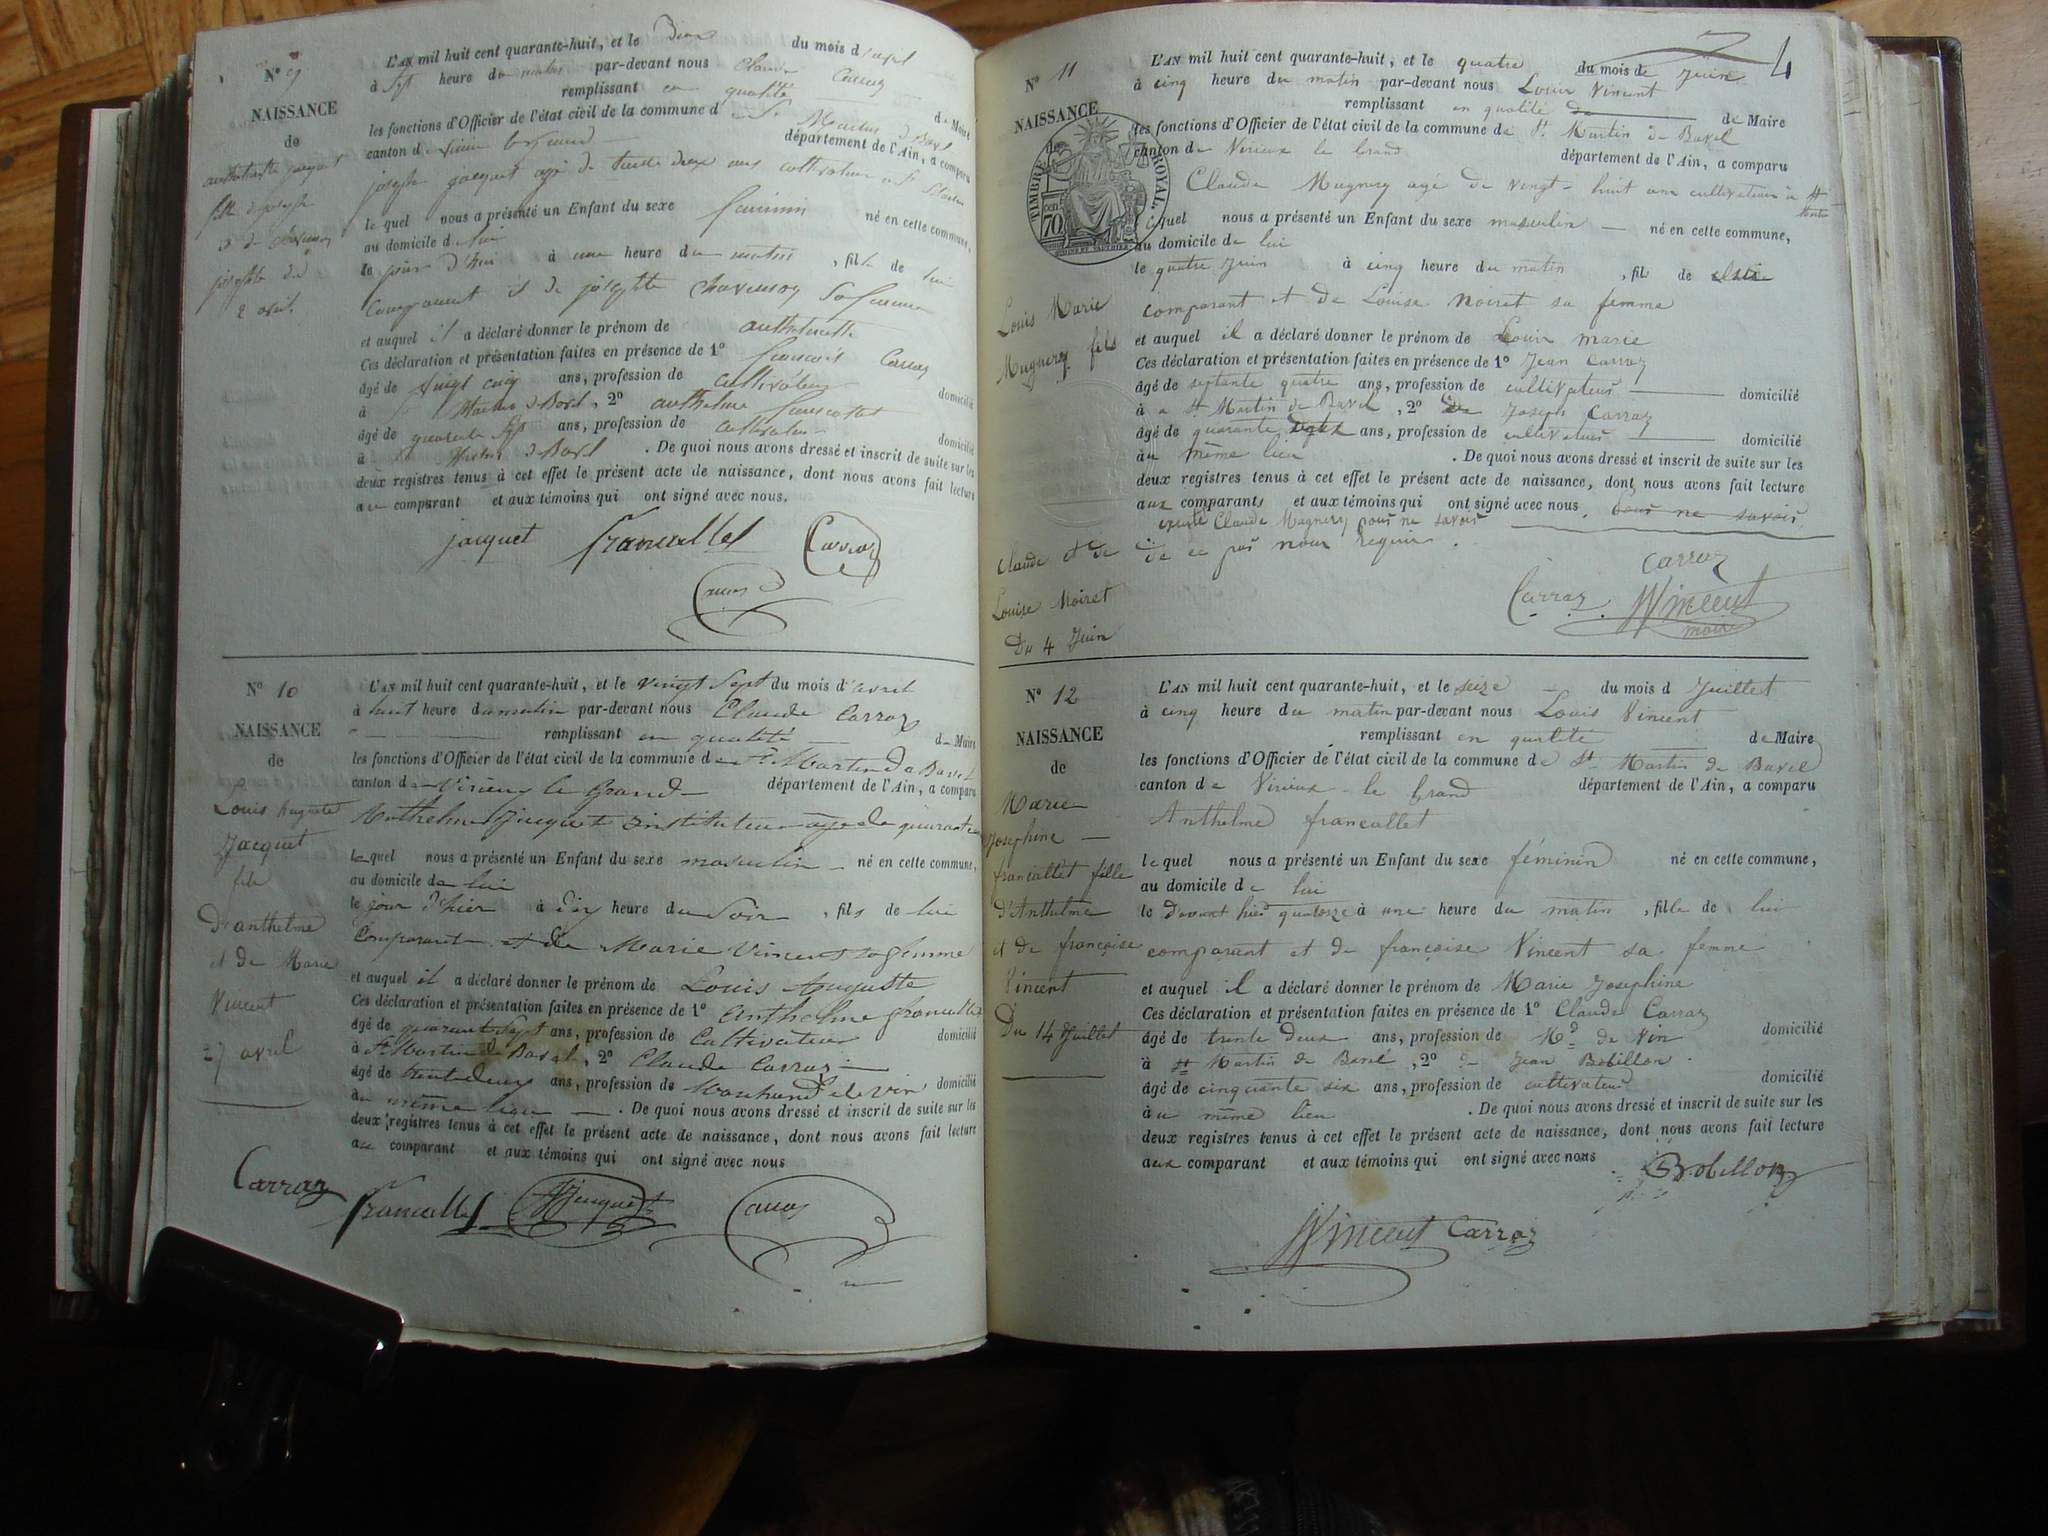 N° 9
NAISSANCE
de
anthelmette jacquet
fille de joseph
et de chavensoy
josephte du
2 avril.
L'AN mil huit cent quarante-huit, et le Deux du mois d'avril
à Sept heure du matin par-devant nous Claude Carraz
remplissant en qualité de Maire
les fonctions d'Officier de l'état civil de la commune de St Martin de Bavel
canton de virieu le grand département de l'Ain, a comparu
joseph jacquet agé de trente deux ans cultivateur a St Martin
le quel nous a présenté un Enfant du sexe feminin né en cette commune,
au domicile de lui
le jour d'hui à une heure du matin, fille de lui
Comparant et de josephte chavensoy Sa femme
et auquel il a déclaré donner le prénom de anthelmette
Ces déclaration et présentation faites en présence de 1° francois Carraz
âgé de vingt cinq ans, profession de cultivateur domicilié
à St Martin de Bavel, 2° anthelme francallet
âgé de quarante Sept ans, profession de cultivateur domicilié
à St Martin de Bavel. De quoi nous avons dressé et inscrit de suite sur les
deux registres tenus à cet effet le présent acte de naissance, dont nous avons fait lecture
au comparant et aux témoins qui ont signé avec nous.
jacquet francallet Carraz
Carraz
N° 10
NAISSANCE
de
Louis auguste
Jacquet
fils
D'anthelme
et de Marie
Vincent
27 avril
L'AN mil huit cent quarante-huit, et le vingt Sept du mois d'avril
à huit heure du matin par-devant nous Claude Carraz
remplissant en qualité de Maire
les fonctions d'Officier de l'état civil de la commune de St Martin de Bavel
canton de Virieux le Grand département de l'Ain, a comparu
Anthelme Jacquet Instituteur âgé de quarante
le quel nous a présenté un Enfant du sexe masculin né en cette commune,
au domicile de lui
le jour d'hier à dix heure du Soir, fils de lui
Comparant et de Marie Vincent sa femme
et auquel il a déclaré donner le prénom de Louis Auguste
Ces déclaration et présentation faites en présence de 1° Anthelme francallet
âgé de quarante Sept ans, profession de Cultivateur domicilié
à St Martin de Bavel, 2° Claude Carraz
âgé de trente deux ans, profession de Marchand de vin domicilié
au même lieu. De quoi nous avons dressé et inscrit de suite sur les
deux registres tenus à cet effet le présent acte de naissance, dont nous avons fait lecture
aux comparant et aux témoins qui ont signé avec nous
Carraz francallet Jacquet Carraz
4
N° 11
NAISSANCE
de
TIMBRE ROYAL
70 cen
Louis Marie
Mugnery fils
Claude et de
Louise Noiret
Du 4 Juin
L'AN mil huit cent quarante-huit, et le quatre du mois de Juin
à cinq heure du matin par-devant nous Louis Vincent
remplissant en qualité de Maire
les fonctions d'Officier de l'état civil de la commune de St Martin de Bavel
canton de Virieux le Grand département de l'Ain, a comparu
Claude Mugnery agé de vingt-huit ans cultivateur à St Martin
le quel nous a présenté un Enfant du sexe masculin né en cette commune,
au domicile de lui
le quatre Juin à cinq heure du matin, fils de
comparant et de Louise Noiret sa femme
et auquel il a déclaré donner le prénom de Louis Marie
Ces déclaration et présentation faites en présence de 1° Jean Carraz
âgé de septante quatre ans, profession de cultivateur domicilié
à a St Martin de Bavel, 2° de Joseph Carraz
âgé de quarante ans, profession de cultivateur domicilié
au même lieu. De quoi nous avons dressé et inscrit de suite sur les
deux registres tenus à cet effet le présent acte de naissance, dont nous avons fait lecture
aux comparants et aux témoins qui ont signé avec nous. pour ne savoir
excepté Claude Mugnery pour ne savoir
de ce par nous requis.
Carraz
Carraz Vincent
maire
N° 12
NAISSANCE
de
Marie
Josephine
francallet fille
d'Anthelme
et de françoise
Vincent
Du 14 Juillet
L'AN mil huit cent quarante-huit, et le seize du mois d Juillet
à cinq heure du matin par-devant nous Louis Vincent
remplissant en qualité de Maire
les fonctions d'Officier de l'état civil de la commune de St Martin de Bavel
canton de Virieux le Grand département de l'Ain, a comparu
Anthelme francallet
le quel nous a présenté un Enfant du sexe féminin né en cette commune,
au domicile de lui
le d'avant hier quatorze à une heure du matin, fille de lui
comparant et de françoise Vincent sa femme
et auquel il a déclaré donner le prénom de Marie Josephine
Ces déclaration et présentation faites en présence de 1° Claude Carraz
âgé de trente deux ans, profession de Md de Vin domicilié
à St Martin de Bavel, 2° de Jean Bobillon
âgé de cinquante six ans, profession de cultivateur domicilié
à u même lieu. De quoi nous avons dressé et inscrit de suite sur les
deux registres tenus à cet effet le présent acte de naissance, dont nous avons fait lecture
aux comparant et aux témoins qui ont signé avec nous
Bobillon
Vincent Carraz